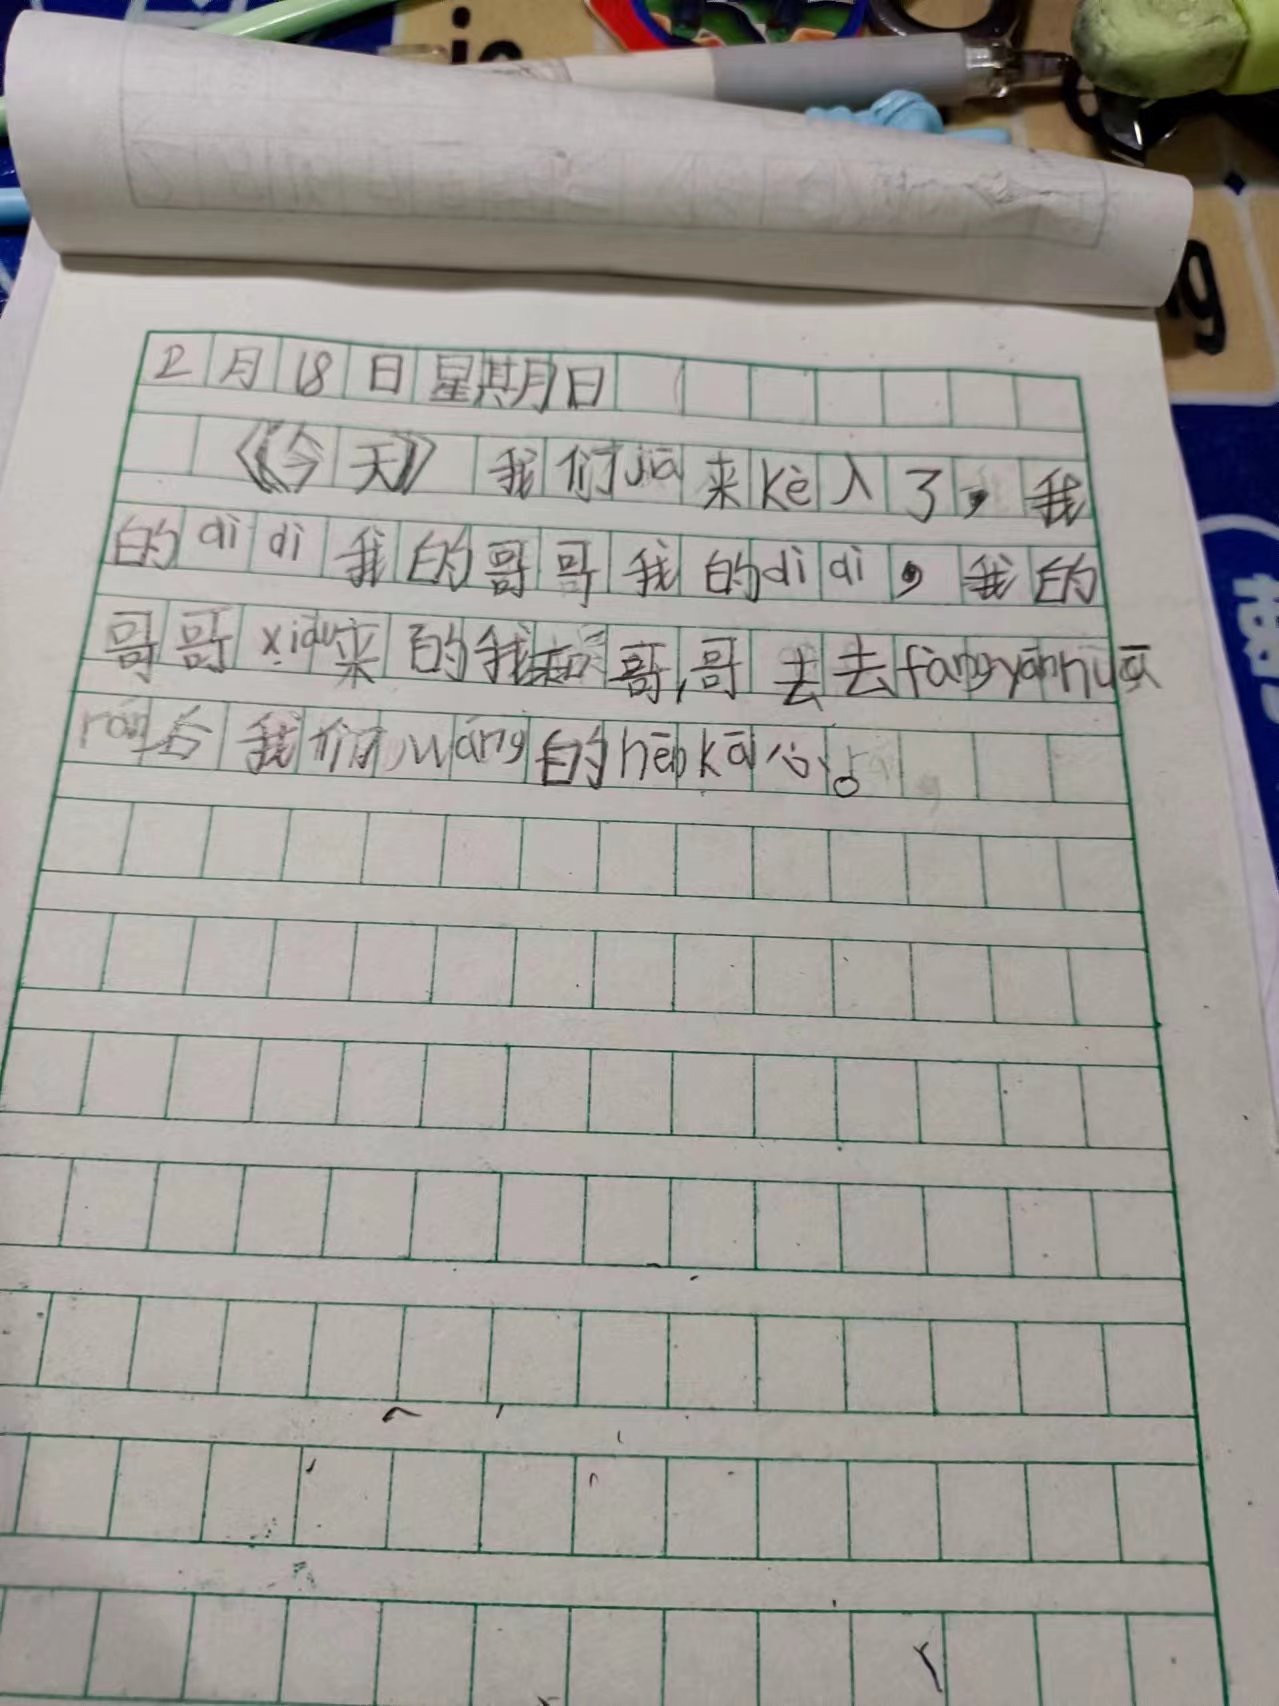 2月18日星期日
《今天》我们jiā来kè入了，我
的dì di 我的哥哥我的dì di，我的
哥哥 xiǎo来的我和哥,哥去去fàngyānhuā
rán后我们wáng的hěnkāi心。